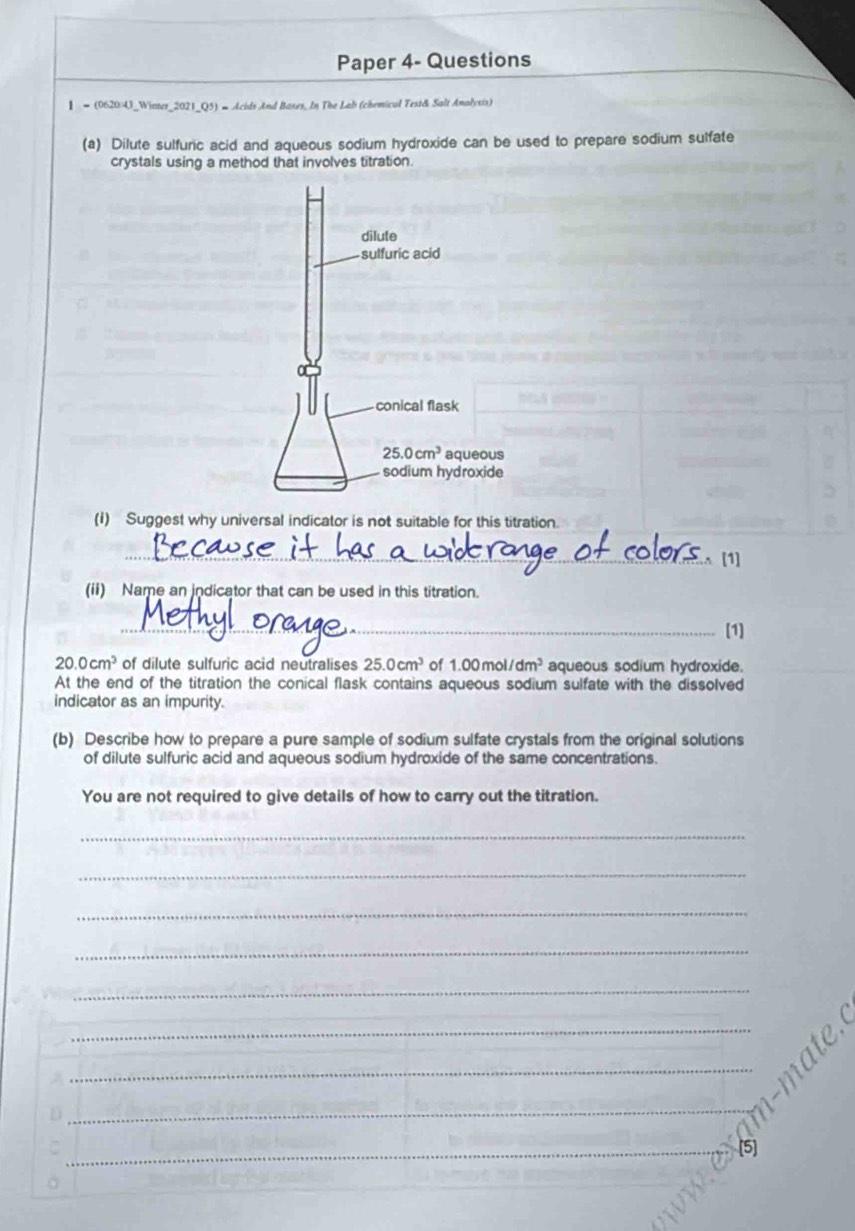 Paper 4- Questions
1 - (0620/43_Winter_2021_Q5) - Acids And Bases, In The Lab (chemical Test& Salt Analysis)
(a) Dilute sulfuric acid and aqueous sodium hydroxide can be used to prepare sodium sulfate
crystals using a method that involves titration.
dilute
sulfuric acid
conical flask
25.0 cm³ aqueous
sodium hydroxide
(i) Suggest why universal indicator is not suitable for this titration.
Because it has a wide range of colors. [1]
(ii) Name an indicator that can be used in this titration.
Methyl orange. [1]
20.0 cm³ of dilute sulfuric acid neutralises 25.0 cm³ of 1.00 mol/dm³ aqueous sodium hydroxide.
At the end of the titration the conical flask contains aqueous sodium sulfate with the dissolved
indicator as an impurity.
(b) Describe how to prepare a pure sample of sodium sulfate crystals from the original solutions
of dilute sulfuric acid and aqueous sodium hydroxide of the same concentrations.
You are not required to give details of how to carry out the titration.
[5]
www.exam-mate.c